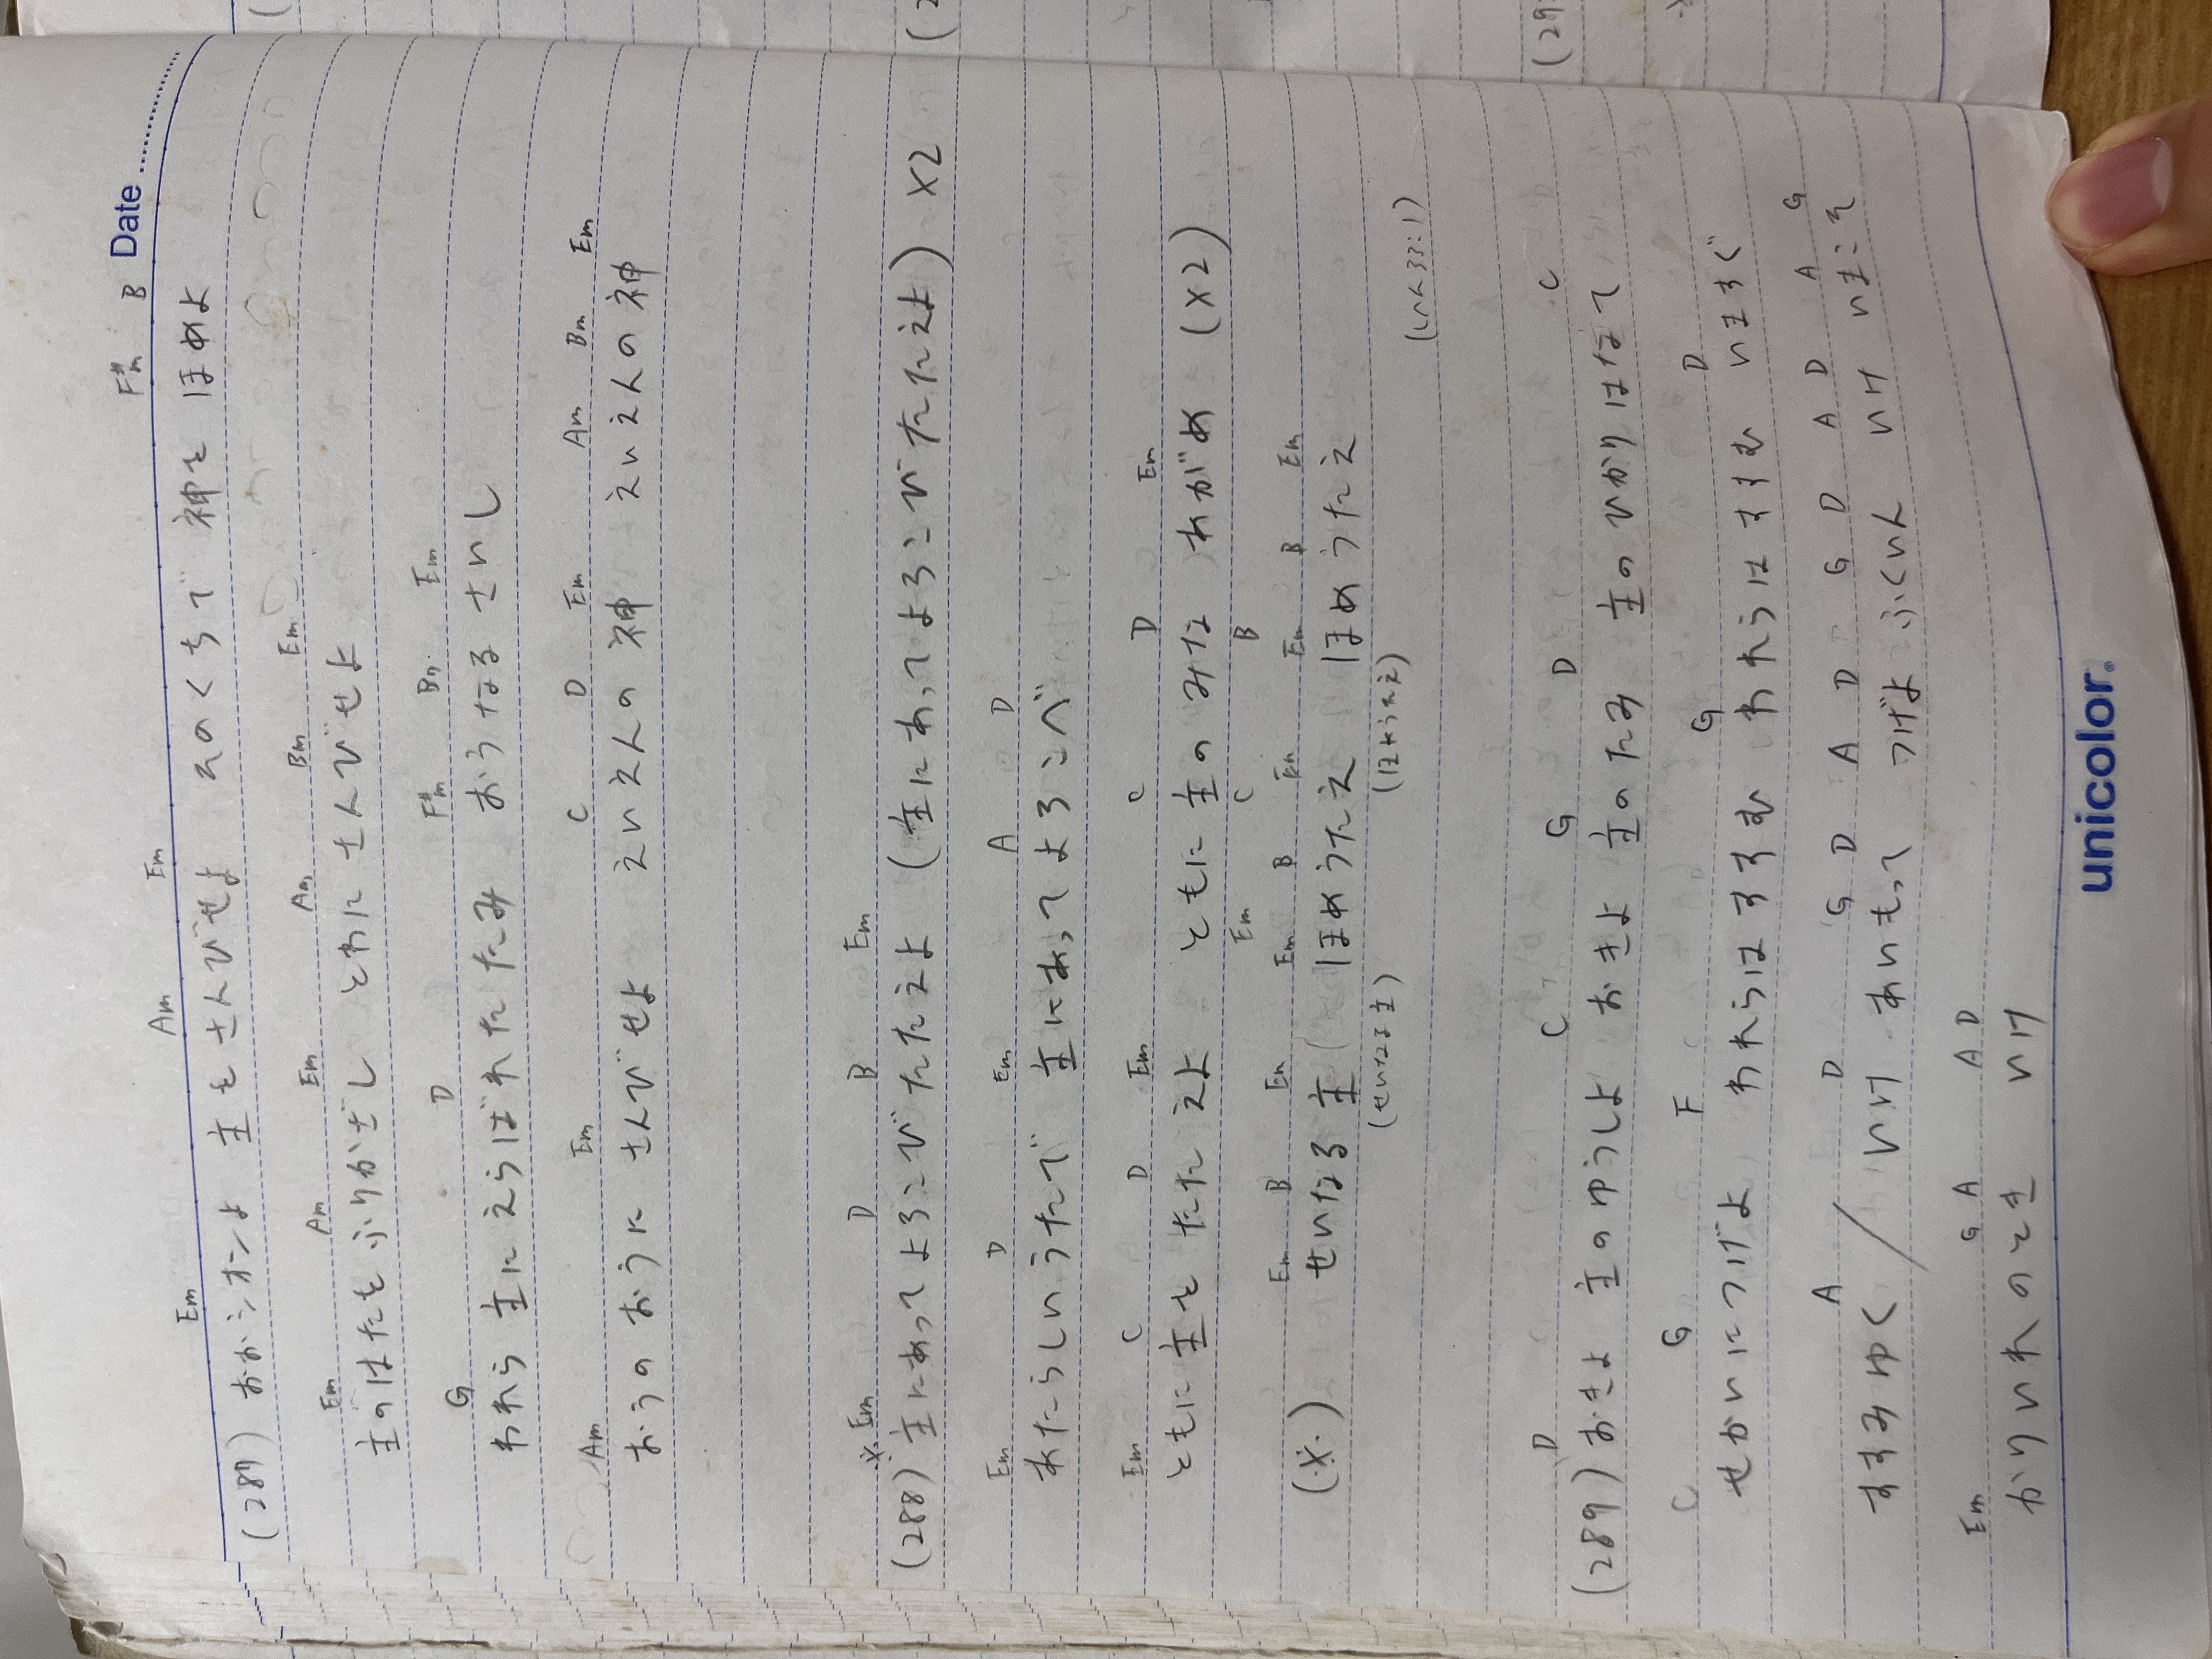 Date
F#m B
Em Am Em
(287) おおシオンよ 主をさんびせよ そのくちで 神を ほめよ
Em Am Em Am Bm Em
主のはたを ふりかざし とわに さんびせよ
G D F#m Bm Em
われら 主に えらばれた たみ おうなる さいし
Am Em C D Em Am Bm Em
おうの おうに さんびせよ えいえんの 神 えいえんの 神
※ Em D B Em
(288) 主にあってよろこびたたえよ (主にあってよろこびたたえよ) ×2
Em D Em A D
あたらしいうたで 主にあってよろこべ
Em C D Em C D Em
ともに 主を たたえよ ともに 主の みな あがめ (×2)
Em C B
Em B Em Em B Em Em B Em
(※) せいなる 主 ほめうたえ ほめうたえ
(せいなる主) (ほめうたえ)
(しへ33:1)
D C G D C
(289) おきよ 主の ゆうしよ おきよ 主のたみ 主の ひかり はなて
C G F G D
せかいに つげよ われらは すすむ われらは すすむ いますぐ
A D G D A D G D A D A G
すすみゆく / いけ あいもって つげよ ふくいん いけ いまこそ
Em G A A D
かりいれのとき いけ
unicolor.